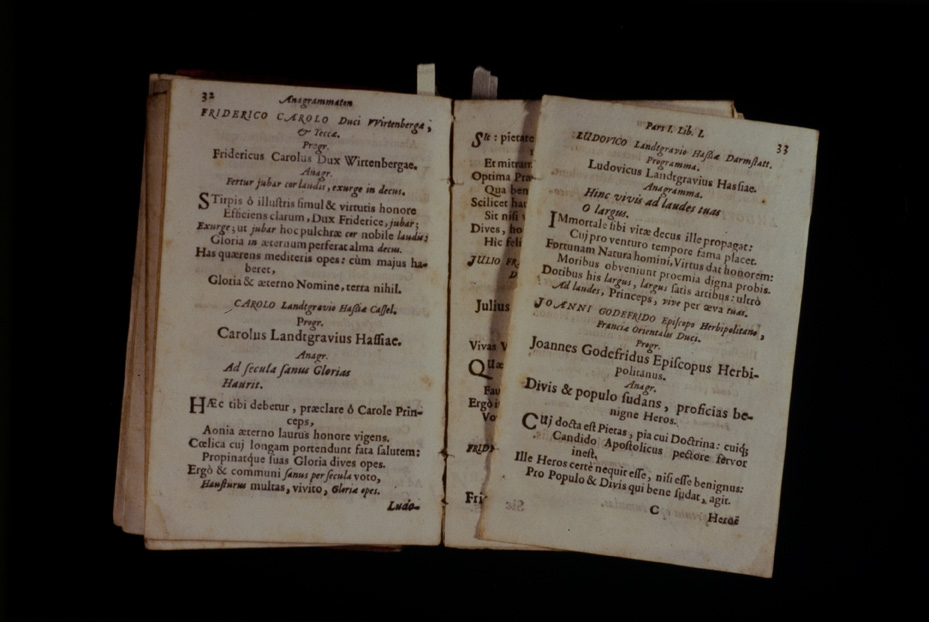 32
Anagrammaton
FRIDERICO CAROLO Duci Wirtenbergæ,
& Teccæ.
Progr.
Fridericus Carolus Dux Wirtenbergae.
Anagr.
Fertur jubar cor laudis, exurge in decus.
STirpis ô illustris simul & virtutis honore
Efficiens clarum, Dux Friderice, jubar;
Exurge; ut jubar hoc pulchræ cor nobile laudis:
Gloria in æternum perferat alma decus.
Has quærens mediteris opes: cùm majus ha-
beret,
Gloria & æterno Nomine, terra nihil.
CAROLO Landtgravio Hassiæ Cassel.
Progr.
Carolus Landtgravius Hassiae.
Anagr.
Ad secula sanus Glorias
Hauris.
HÆc tibi debetur, præclare ô Carole Prin-
ceps,
Aonia æterno laurus honore vigens.
Cœlica cuj longam portendunt fata salutem:
Propinatque suas Gloria dives opes.
Ergò & communi sanus per secula voto,
Hausturus multas, vivito, Gloria opes.
Ludo-
Sit: pietate
Et mitram
Optima
Qua ben
Scilicet
Sit nisi
Dives, ho
Hic feli
JULIO FR
D
Julius
Vivas
Quæ
Fau
Ergò
Vo
FRID
Fri
Sic
Pars I. Lib. I.
33
LUDOVICO Landtgravio Hassiæ Darmstatt.
Programma.
Ludovicus Landtgravius Hassiae.
Anagramma.
Hinc vivis ad laudes tuas
O largus.
IMmortale sibi vitæ decus ille propagat:
Cuj pro venturo tempore fama placet.
Fortunam Natura homini, Virtus dat honorem:
Moribus obveniunt proemia digna probis.
Dotibus his largus, largus satis artibus: ultrò
Ad laudes, Princeps, vive per æva tuas.
JOANNI GODEFRIDO Episcopo Herbipolitano,
Franciæ Orientalis Duci.
Progr.
Joannes Godefridus Episcopus Herbi-
politanus.
Anagr.
Divis & populo sudans, proficias be-
nigne Heros.
CUj docta est Pietas, pia cui Doctrina: cuiq;
Candido Apostolicus pectore fervor
inest.
Ille Heros certè nequit esse, nisi esse benignus:
Pro Populo & Divis qui bene sudat, agit.
C